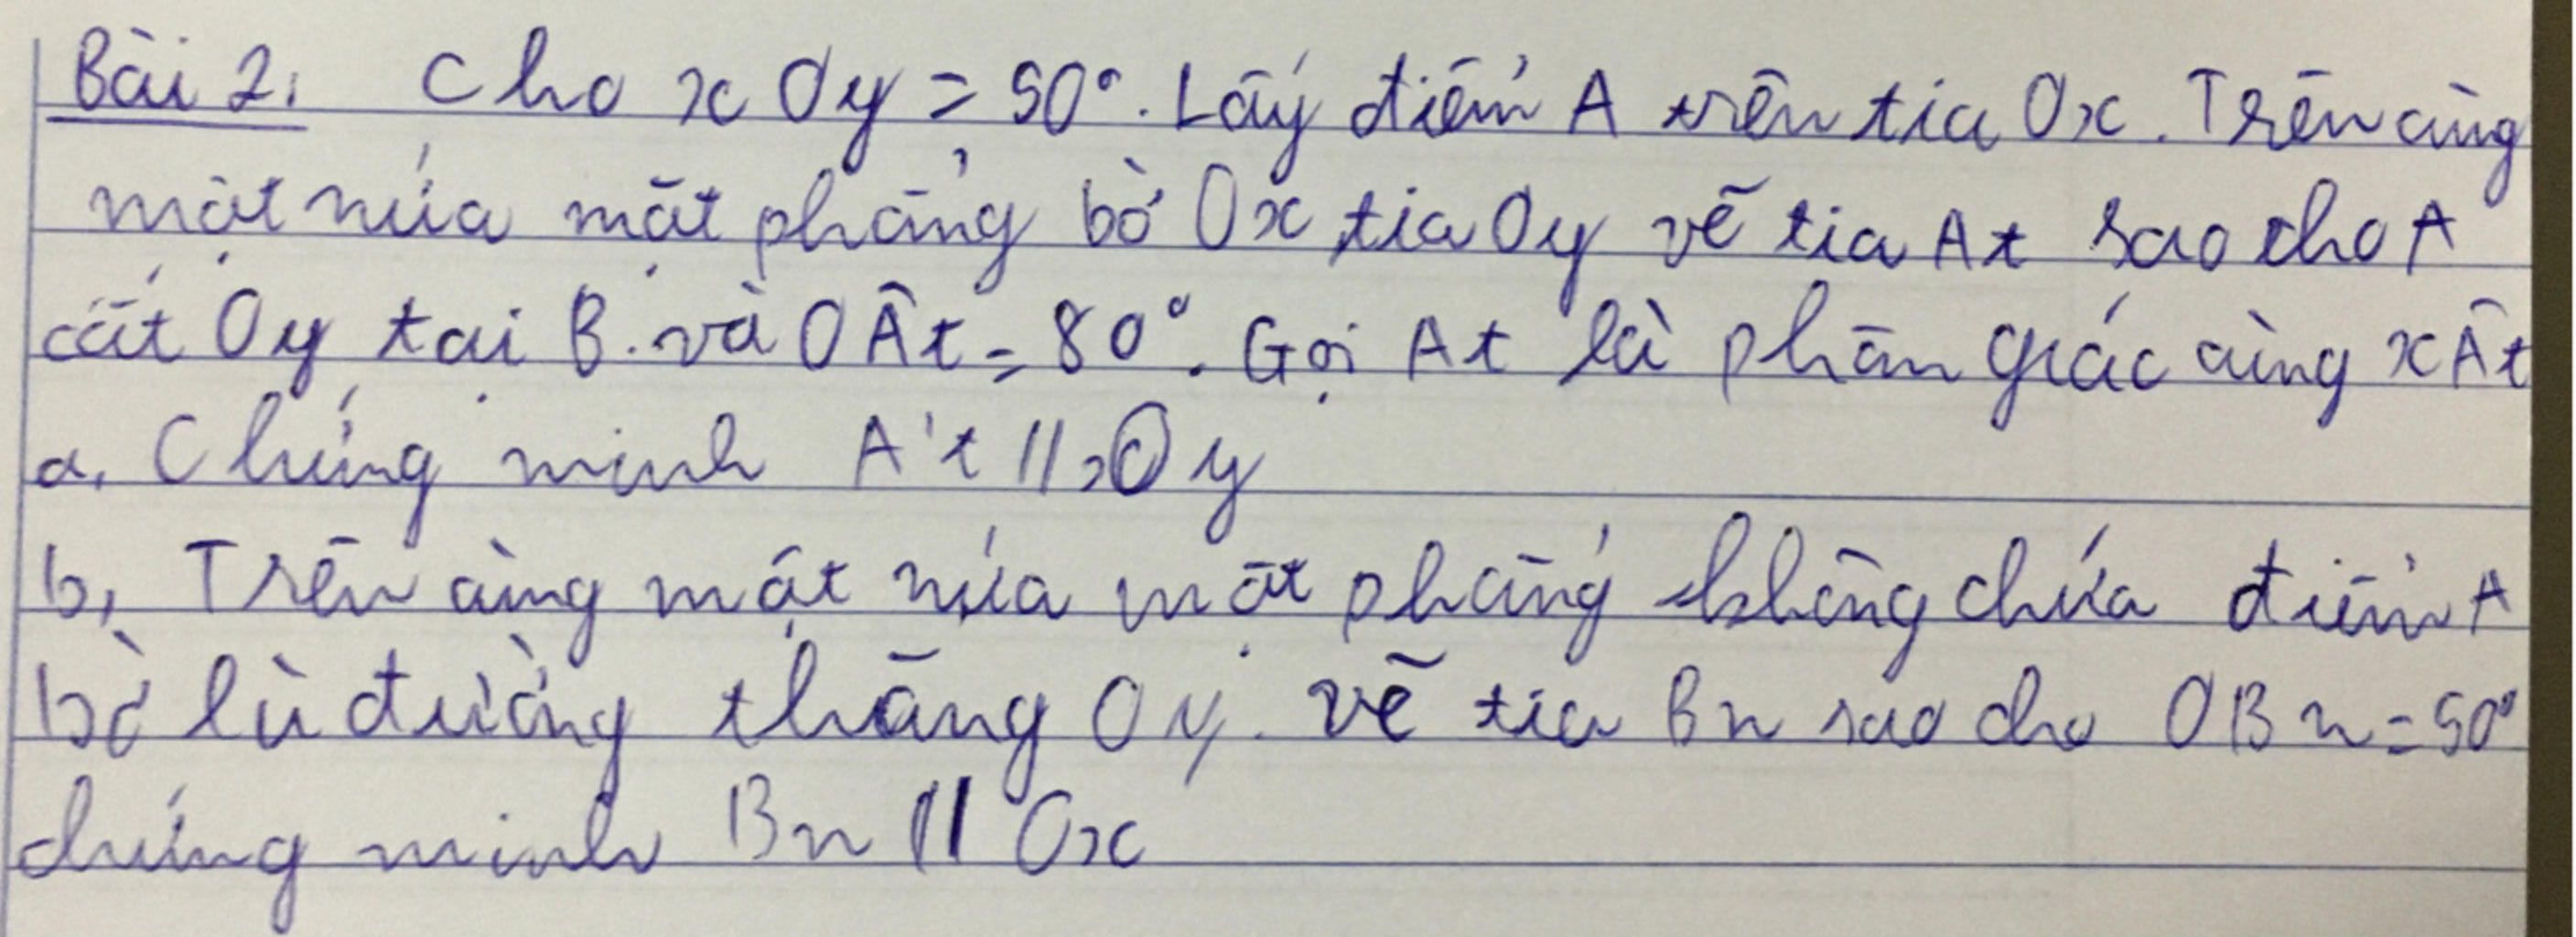 Bài 2: Cho xOy = 50°. Lấy điểm A trên tia Ox. Trên cùng
một nửa mặt phẳng bờ Ox tia Oy vẽ tia At sao cho A
cắt Oy tại B. và OÂt = 80°. Gọi At là phân giác cùng xÂt
a, Chứng minh A't // Oy
b, Trên cùng một nửa mặt phẳng không chứa điểm A
bờ là đường thẳng Oy. vẽ tia Bn sao cho OBn = 50°
chứng minh Bn // Ox